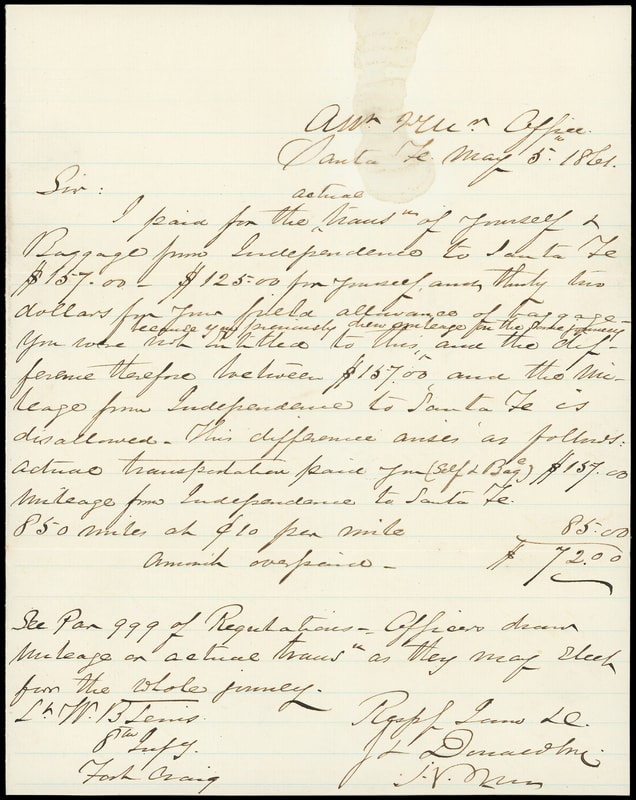 Office.
Santa Fe May 5th 1861.
Sir:
I paid for the actual transn of yourself &
Baggage from Independence to Santa Fe
$157.00 – $125.00 for yourself, and thirty two
dollars for your field allowance of baggage –
because you previously drew mileage for the same journey
You were not entitled to this, and the dif-
ference therefore between $157.00 and the mi-
leage from Independence to Santa Fe is
disallowed – This difference arises as follows:
actual transportation paid you (Self & Bage) $157.00
mileage from Independence to Santa Fe.
850 miles at ¢10 per mile 85.00
Amount overpaid – $72.00
See Par 999 of Regulations – Officers draw
mileage or actual transn as they may elect
for the whole journey.
Lt. W. B.
8th Infy.
Fort Craig
Donaldson